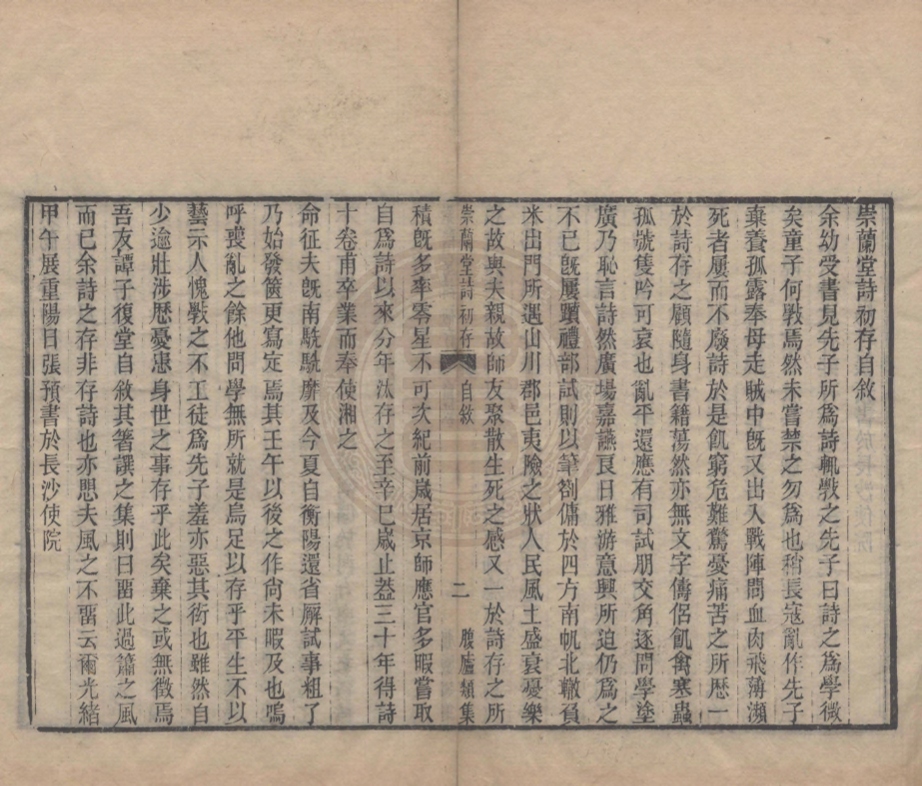 崇蘭堂詩初存自敘
余幼受書見先子所爲詩輒斆之先子曰詩之爲學微
矣童子何斆焉然未嘗禁之勿爲也稍長寇亂作先子
棄養孤露奉母走賊中旣又出入戰陣閒血肉飛薄瀕
死者屢而不廢詩於是飢窮危難驚憂痛苦之所歷一
於詩存之顧隨身書籍蕩然亦無文字儔侶飢禽寒蟲
孤號隻吟可哀也亂平還應有司試朋交角逐問學塗
廣乃恥言詩然廣場嘉讌良日雅游意興所迫仍爲之
不已旣屢躓禮部試則以筆劄傭於四方南帆北轍負
米出門所遇山川郡邑夷險之狀人民風土盛衰憂樂
之故與夫親故師友聚散生死之感又一於詩存之所
崇蘭堂詩初存 自敘 二 腹廬類集
積旣多率零星不可次紀前歲居京師應官多暇嘗取
自爲詩以來分年汰存之至辛巳歲止蓋三十年得詩
十卷甫卒業而奉使湘之
命征夫旣南駪駪靡及今夏自衡陽還省廨試事粗了
乃始發篋更寫定焉其壬午以後之作尙未暇及也嗚
呼喪亂之餘他問學無所就是烏足以存乎平生不以
藝示人愧斆之不工徒爲先子羞亦惡其衒也雖然自
少逾壯涉歷憂患身世之事存乎此矣棄之或無徵焉
吾友譚子復堂自敘其箸譔之集則曰畱此過簫之風
而已余詩之存非存詩也亦思夫風之不畱云爾光緒
甲午展重陽日張預書於長沙使院